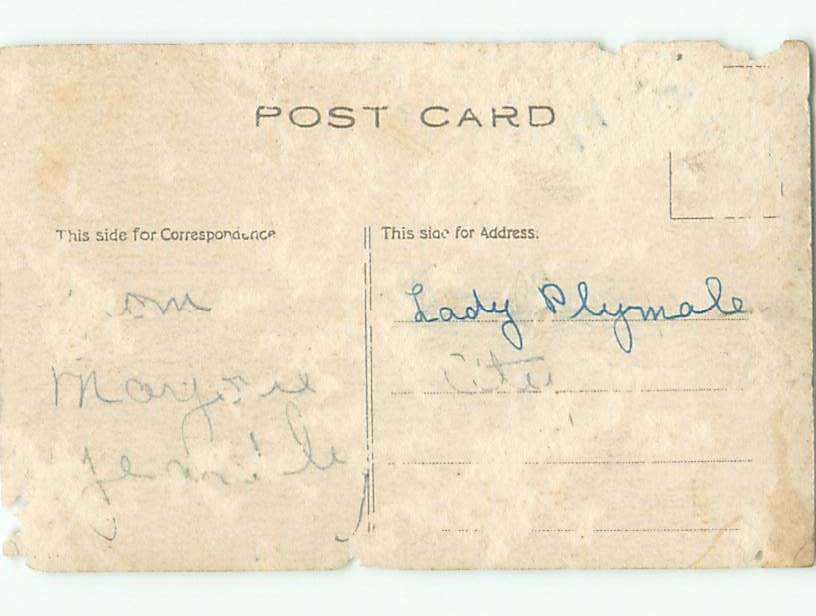 POST CARD
This side for Correspondence
This side for Address.
Lady Plymale
City
Marjorie